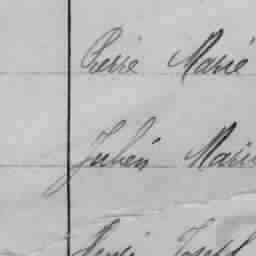 Pierre Marie
Julien Marie
Joseph